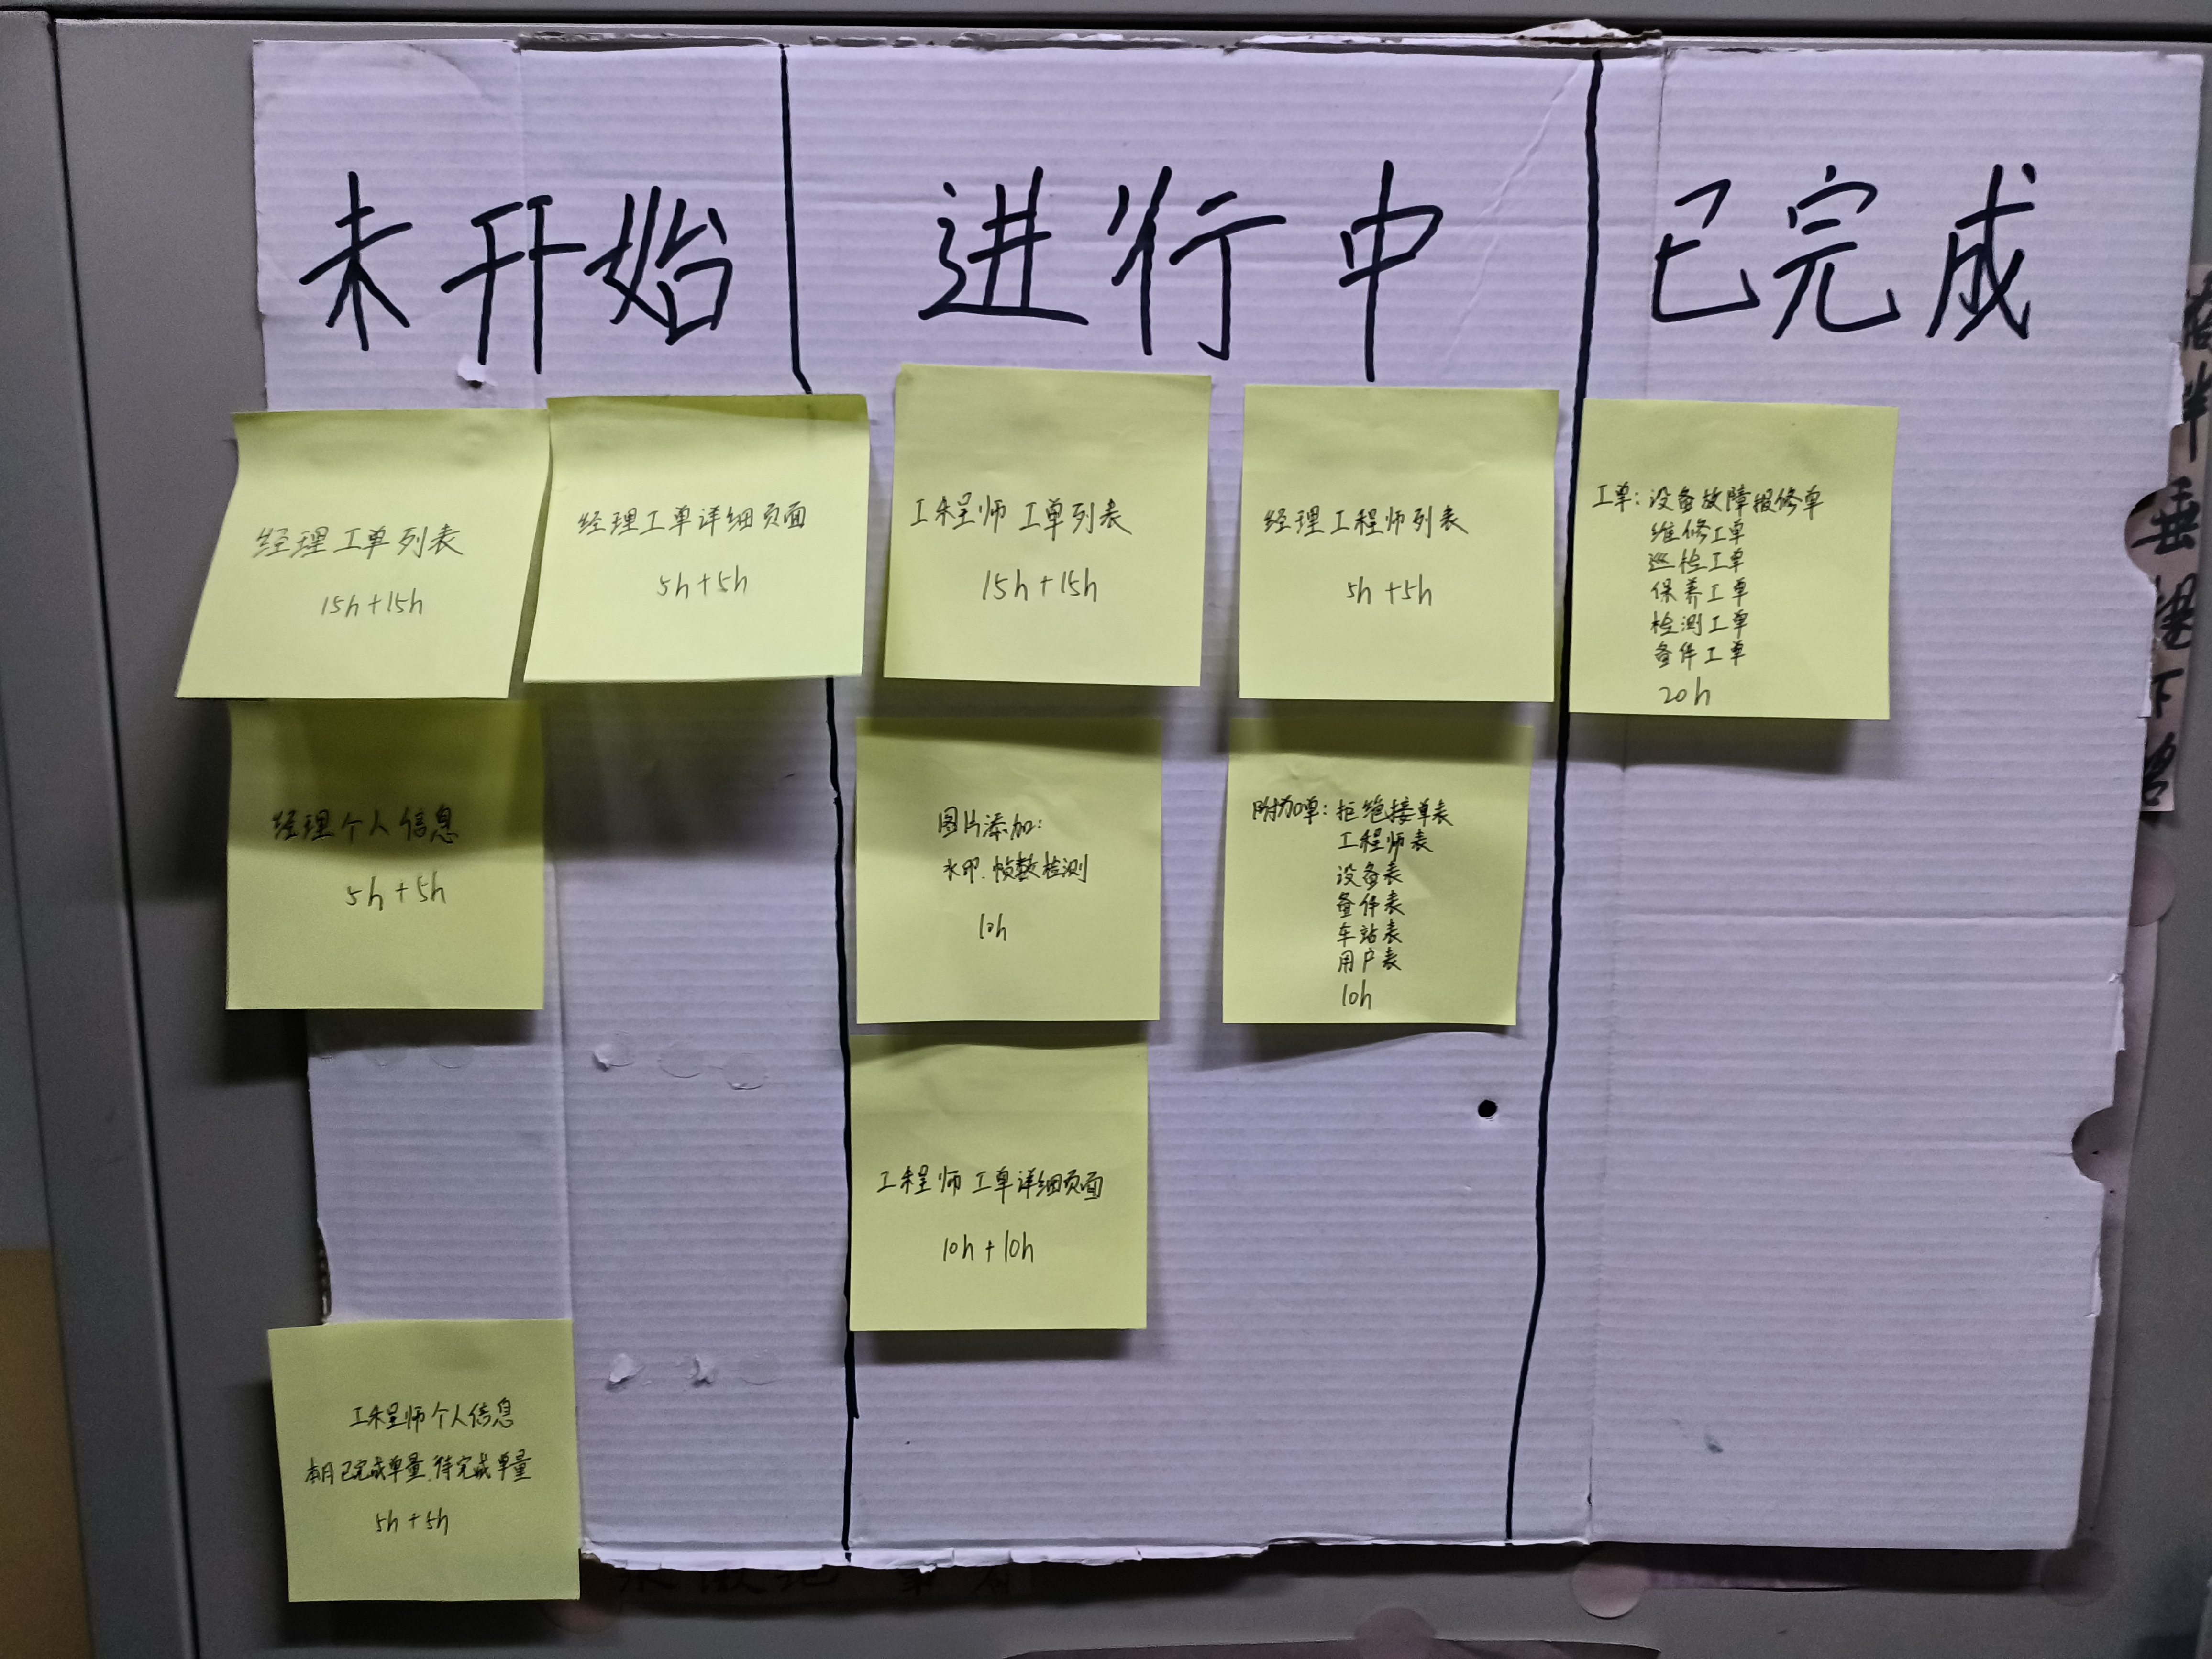 未开始
进行中
已完成
经理工单列表
15h+15h
经理工单详细页面
5h+5h
经理个人信息
5h+5h
工程师个人信息
本月已完成单量、待完成单量
5h+5h
工程师 工单列表
15h+15h
经理工程师列表
5h+5h
图片添加:
水印、帧数检测
10h
附加单:拒绝接单表
工程师表
设备表
备件表
车站表
用户表
10h
工程师 工单详细页面
10h+10h
工单:设备故障报修单
维修工单
巡检工单
保养工单
检测工单
备件工单
20h